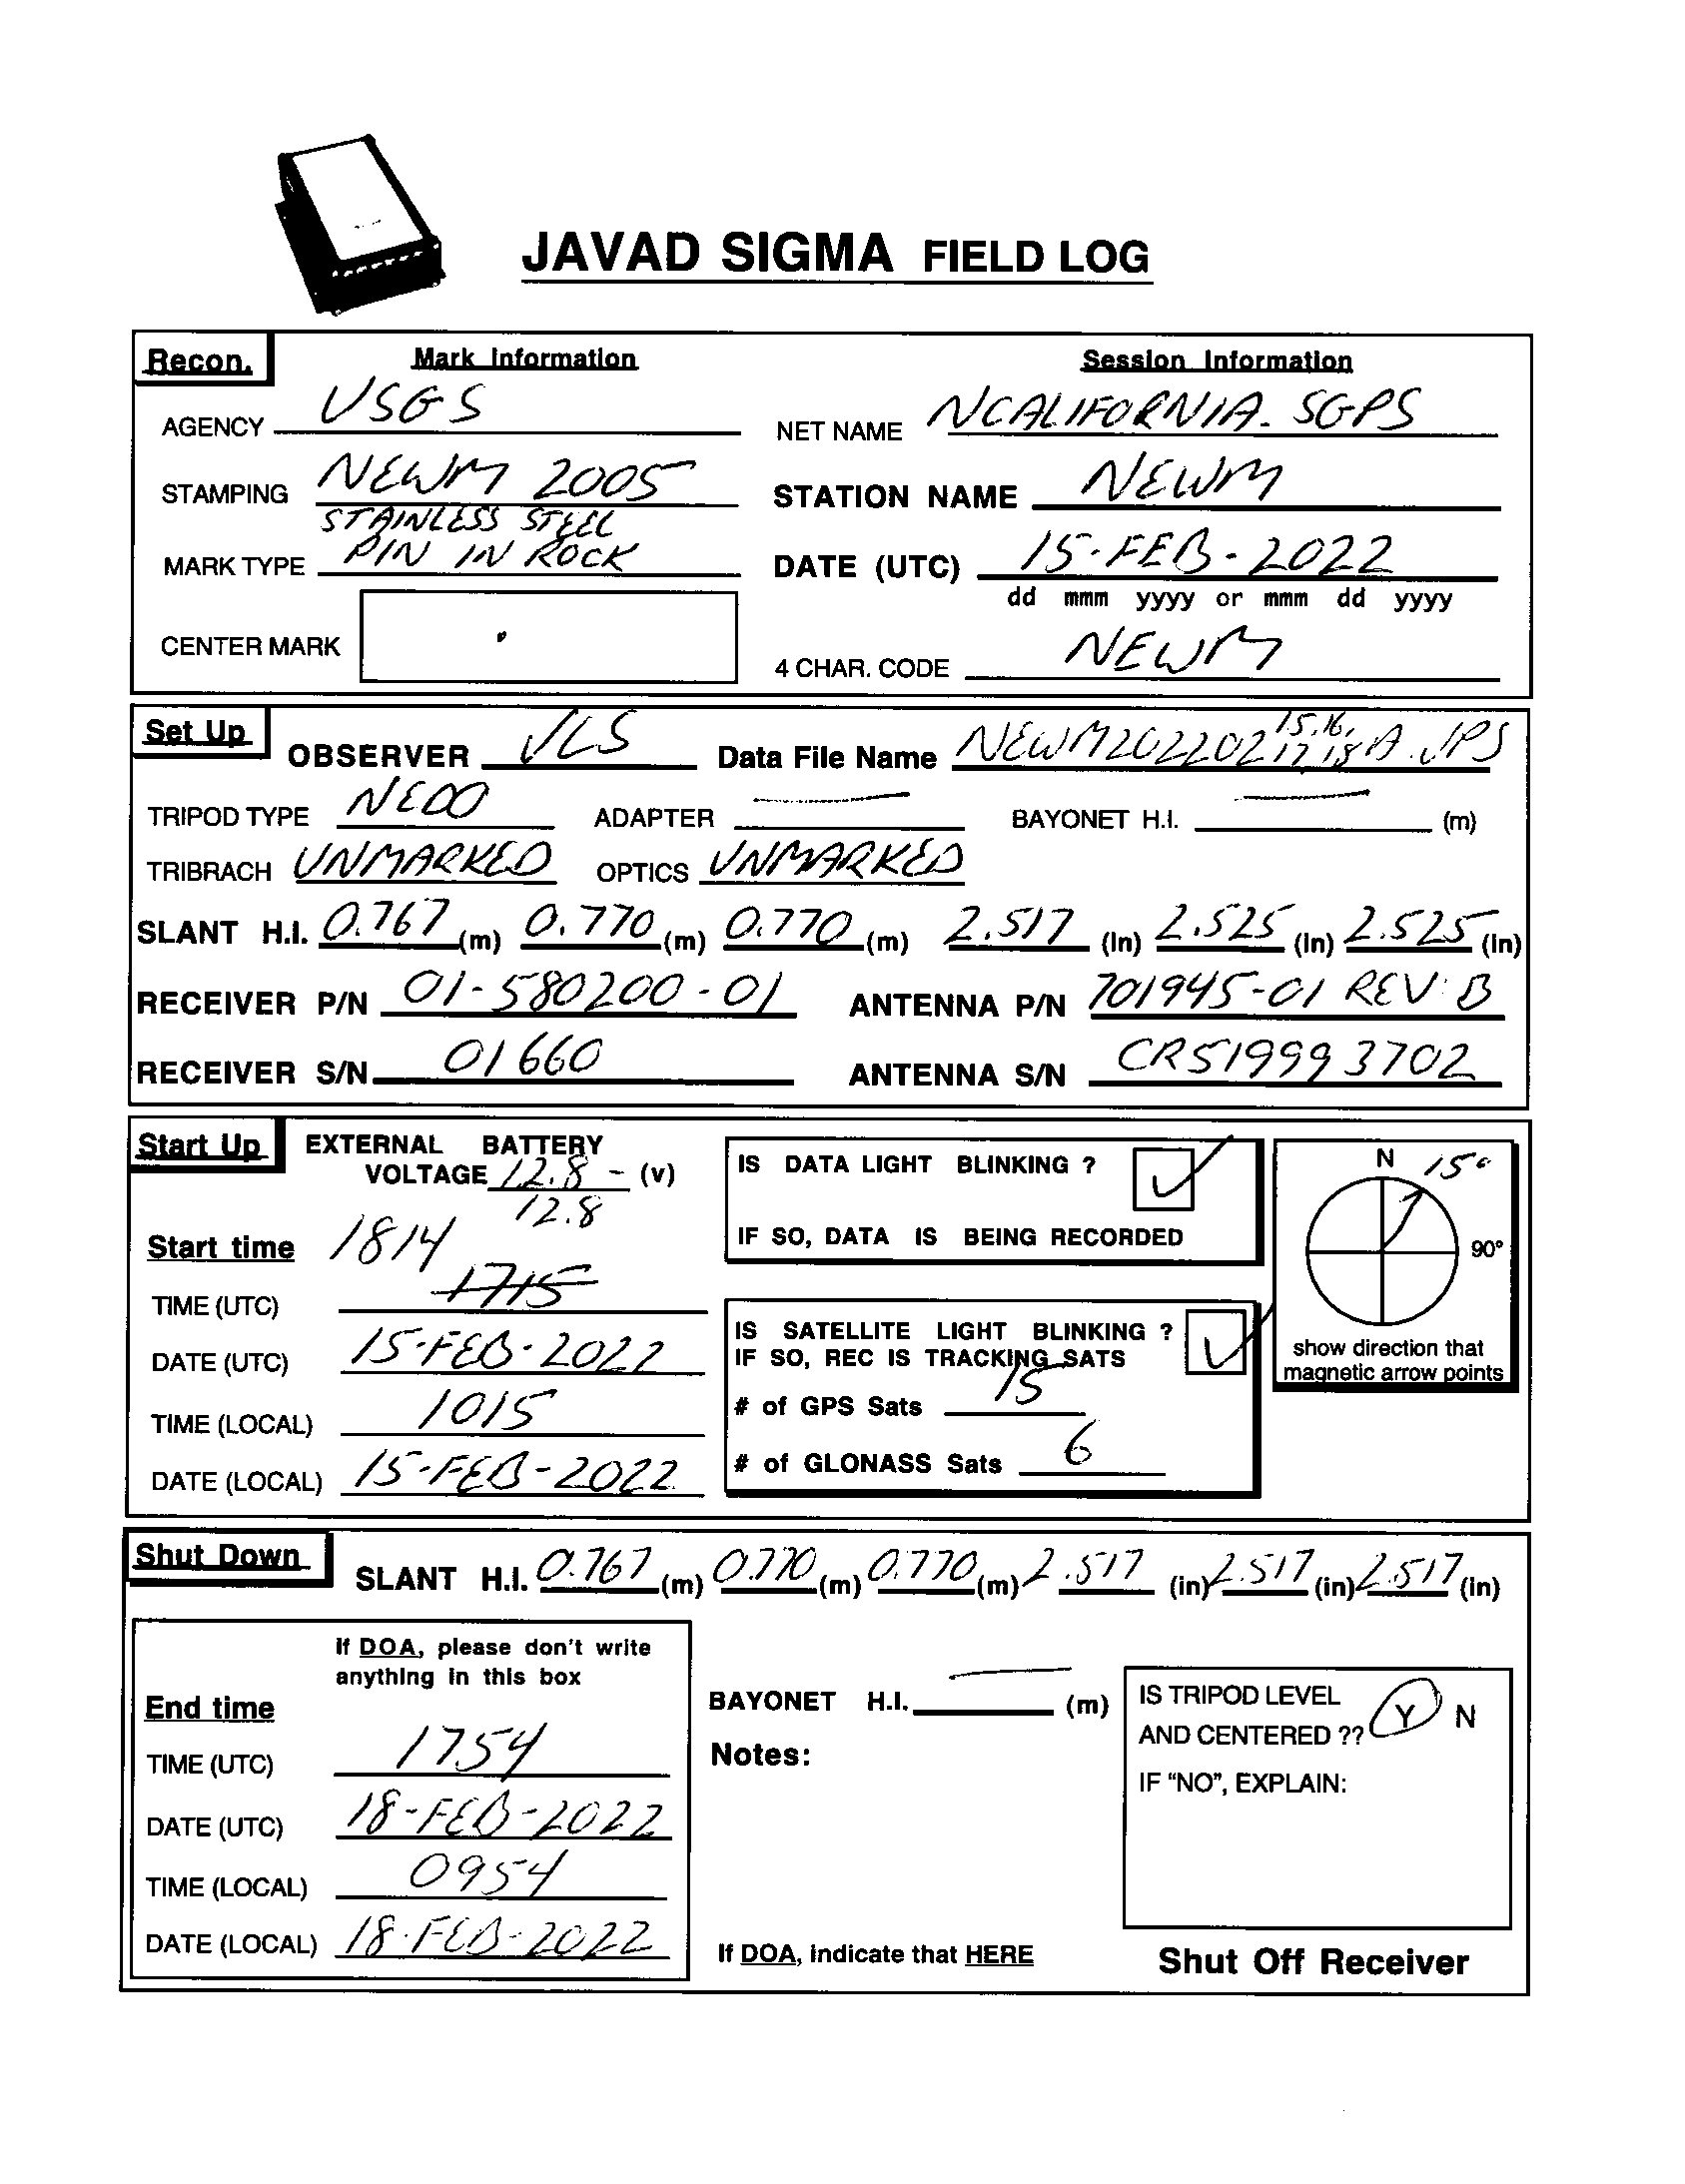 JAVAD SIGMA FIELD LOG
Recon. Mark Information Session Information
AGENCY USGS NET NAME NCALIFORNIA_SGPS
STAMPING NEWM 2005 STATION NAME NEWM
STAINLESS STEEL
MARK TYPE PIN IN ROCK DATE (UTC) 15-FEB-2022
dd mmm yyyy or mmm dd yyyy
CENTER MARK 4 CHAR. CODE NEWM
Set Up OBSERVER JLS Data File Name NEWM202202 15,16,17,18 A.JPS
TRIPOD TYPE NEDO ADAPTER — BAYONET H.I. — (m)
TRIBRACH UNMARKED OPTICS UNMARKED
SLANT H.I. 0.767 (m) 0.770 (m) 0.770 (m) 2.517 (in) 2.525 (in) 2.525 (in)
RECEIVER P/N 01-580200-01 ANTENNA P/N 701945-01 REV: B
RECEIVER S/N 01660 ANTENNA S/N CR519993702
Start Up EXTERNAL BATTERY
VOLTAGE 12.8 - (v)
12.8
IS DATA LIGHT BLINKING ? ✓
IF SO, DATA IS BEING RECORDED
N 15°
90°
show direction that
magnetic arrow points
Start time 1814
TIME (UTC) 1715
DATE (UTC) 15-FEB-2022
TIME (LOCAL) 1015
DATE (LOCAL) 15-FEB-2022
IS SATELLITE LIGHT BLINKING ? ✓
IF SO, REC IS TRACKING SATS
# of GPS Sats 15
# of GLONASS Sats 6
Shut Down SLANT H.I. 0.767 (m) 0.770 (m) 0.770 (m) 2.517 (in) 2.517 (in) 2.517 (in)
If DOA, please don't write
anything in this box
End time
TIME (UTC) 1754
DATE (UTC) 18-FEB-2022
TIME (LOCAL) 0954
DATE (LOCAL) 18-FEB-2022
BAYONET H.I. — (m)
Notes:
If DOA, indicate that HERE
IS TRIPOD LEVEL
AND CENTERED ?? Y N
IF "NO", EXPLAIN:
Shut Off Receiver